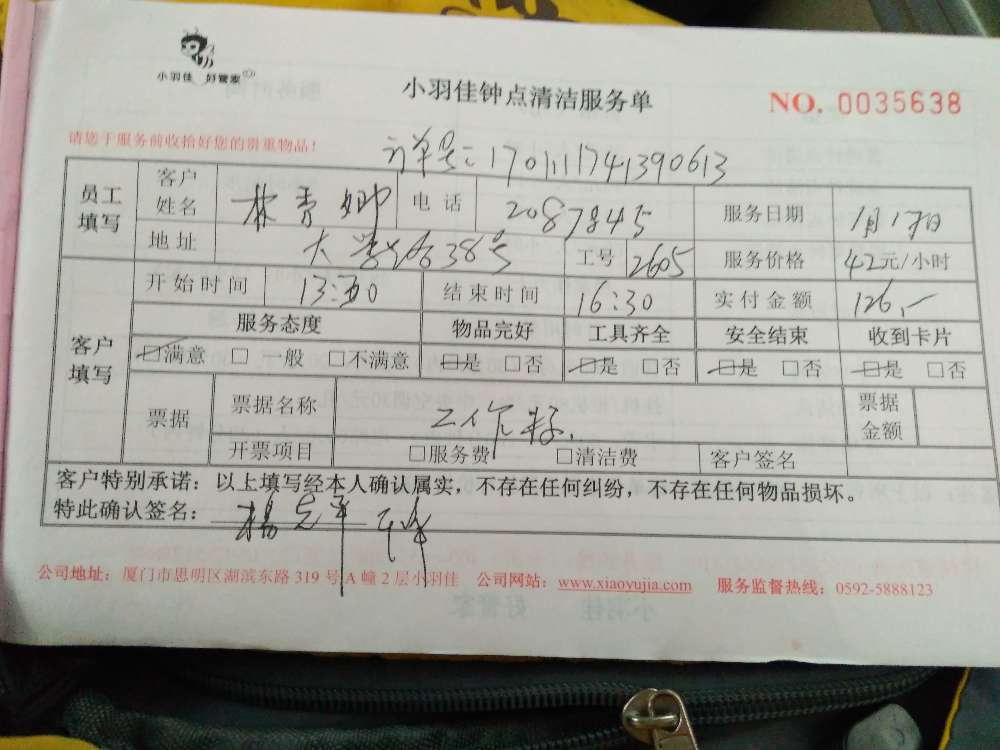 小羽佳 好管家
小羽佳钟点清洁服务单
NO. 0035638
请您于服务前收拾好您的贵重物品！
订单号：170111741390613
员工填写 客户姓名 林秀 电话 2087845 服务日期 1月17日
地址 大学路38号 工号 2605 服务价格 42元/小时
开始时间 13:30 结束时间 16:30 实付金额 126.-
客户填写 服务态度 物品完好 工具齐全 安全结束 收到卡片
☑满意 □一般 □不满意 ☑是 □否 ☑是 □否 ☑是 □否 ☑是 □否
票据 票据名称 工作 票据金额
开票项目 □服务费 □清洁费 客户签名
客户特别承诺：以上填写经本人确认属实，不存在任何纠纷，不存在任何物品损坏。
特此确认签名：杨
公司地址：厦门市思明区湖滨东路 319 号 A 幢 2 层小羽佳 公司网站：www.xiaoyujia.com 服务监督热线：0592-5888123